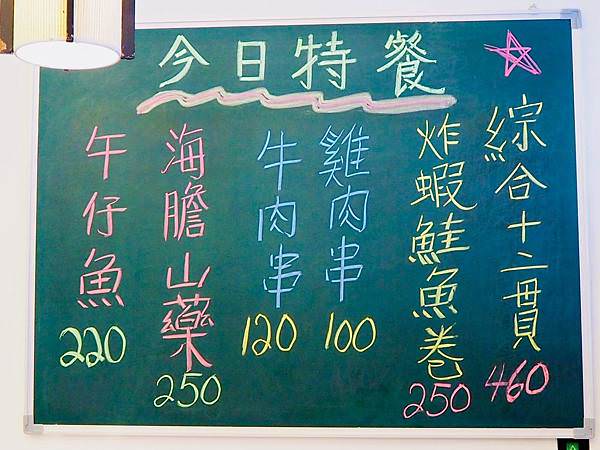 今日特餐
綜合十二貫 460
炸蝦鮭魚卷 250
雞肉串 100
牛肉串 120
海膽山藥 250
午仔魚 220